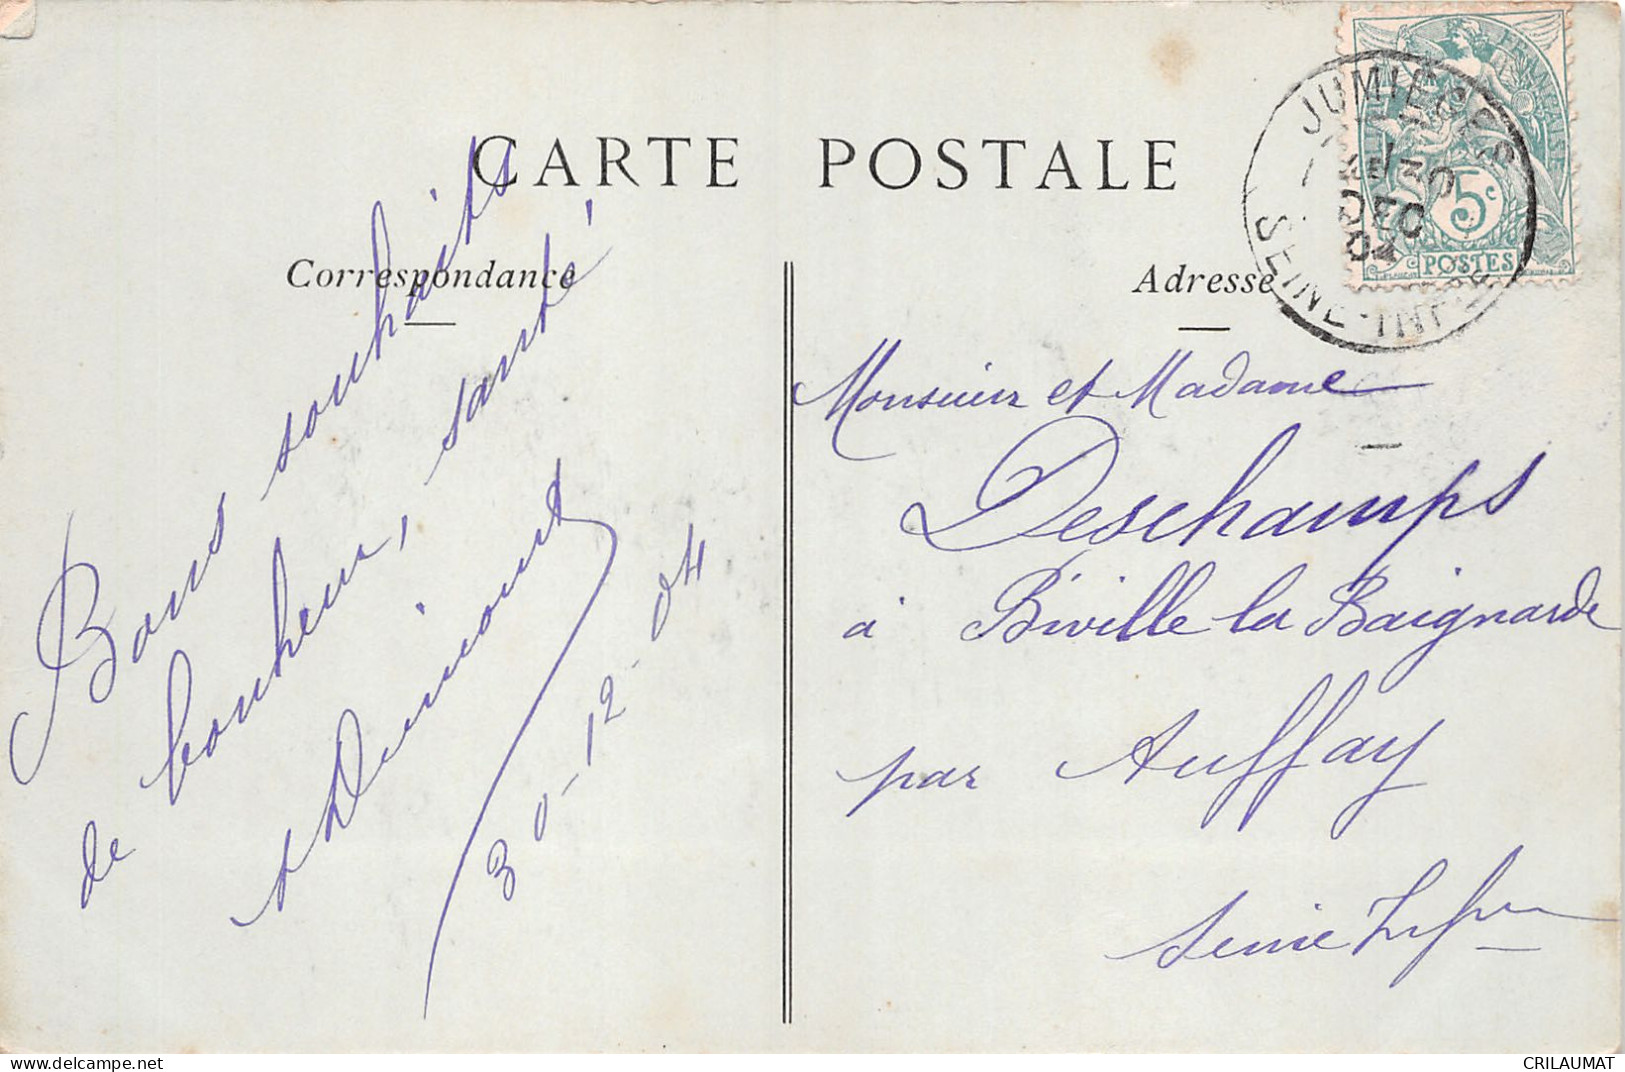 CARTE POSTALE
Correspondance
Adresse
JUMIEGES
30
DEC
04
SEINE-INF
FRANÇAISE
5c
POSTES
Bons souhaits
de bonheur, santé!
Dumont
30-12-04
Monsieur et Madame
Deschamps
à Biville la Baignarde
par Auffay
Seine Infre
CRILAUMAT